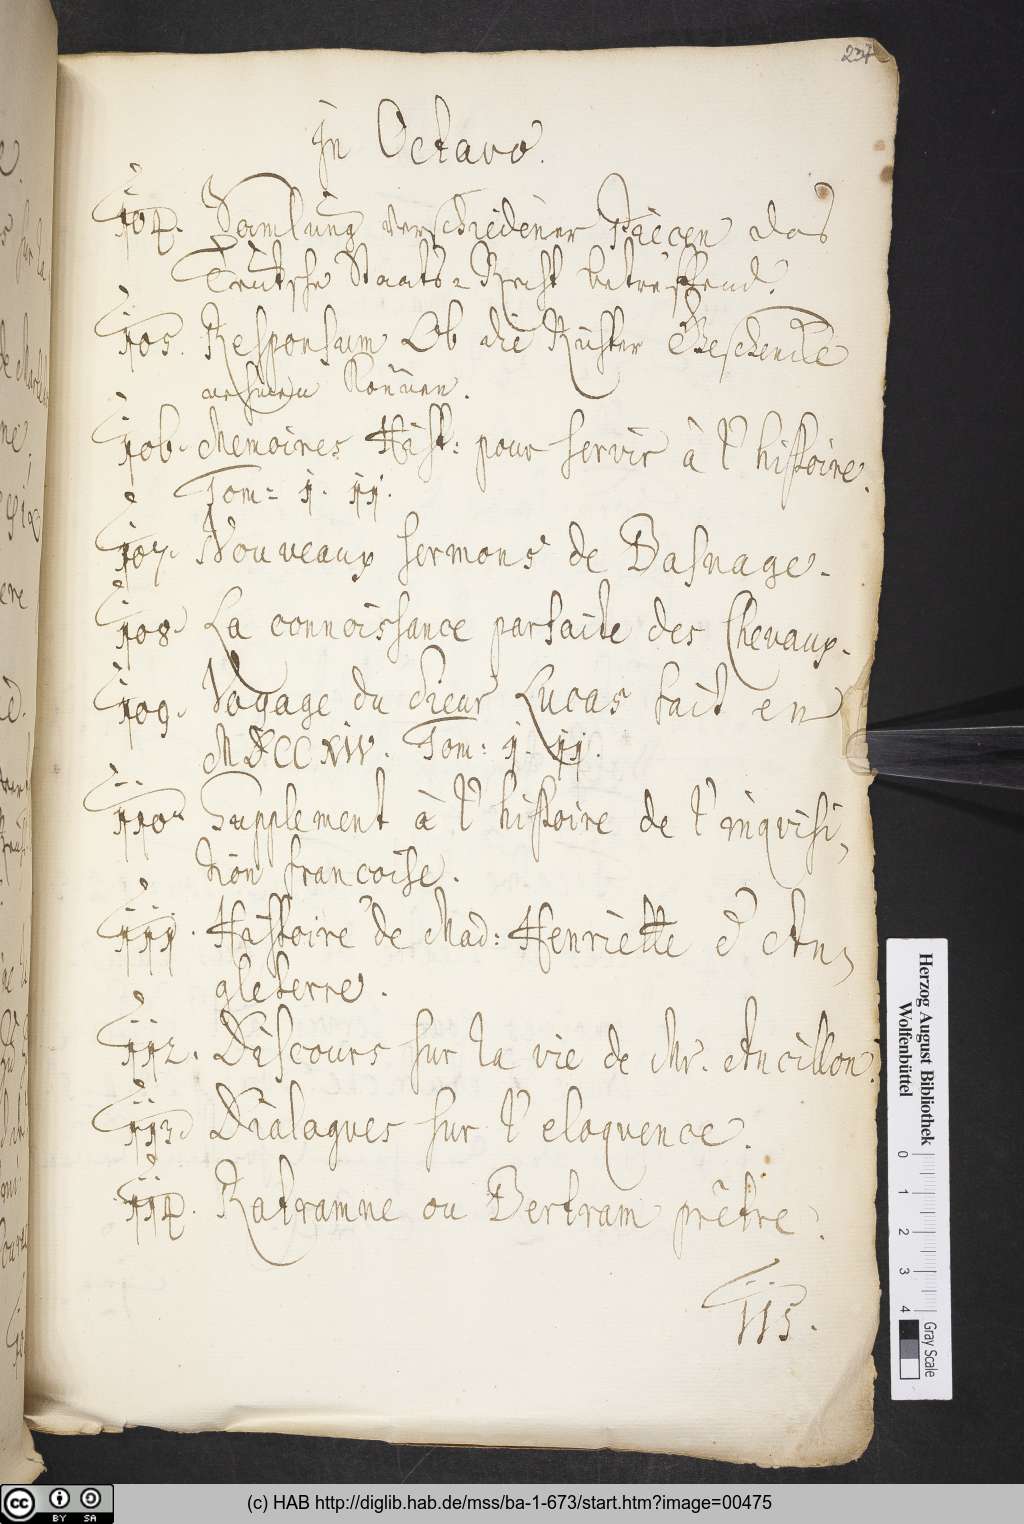 237
Jn Octavo.
104. Samlung verschiedener Piecen das
Teutsche Staats-Recht betreffend.
105. Responsum Ob die Richter Geschencke
nehmen können.
106. Memoires Hist: pour servir à l'histoire.
Tom: I. II.
107. Nouveaux sermons de Basnage.
108. La connoissance parfaite des Chevaux.
109. Voyage du Sieur Lucas fait en
MDCCXIV. Tom: I. II.
110. Supplement à l'histoire de l'inquisi,
tion francoise.
111. Histoire de Mad: Henriette d'An,
gleterre.
112. Discours sur la vie de Mr. Ancillon.
113. Dialogues sur l'eloquence.
114. Ratramne ou Bertram prêtre.
115.
Herzog August Bibliothek
Wolfenbüttel
0 1 2 3 4
Gray Scale
cc BY SA
(c) HAB http://diglib.hab.de/mss/ba-1-673/start.htm?image=00475